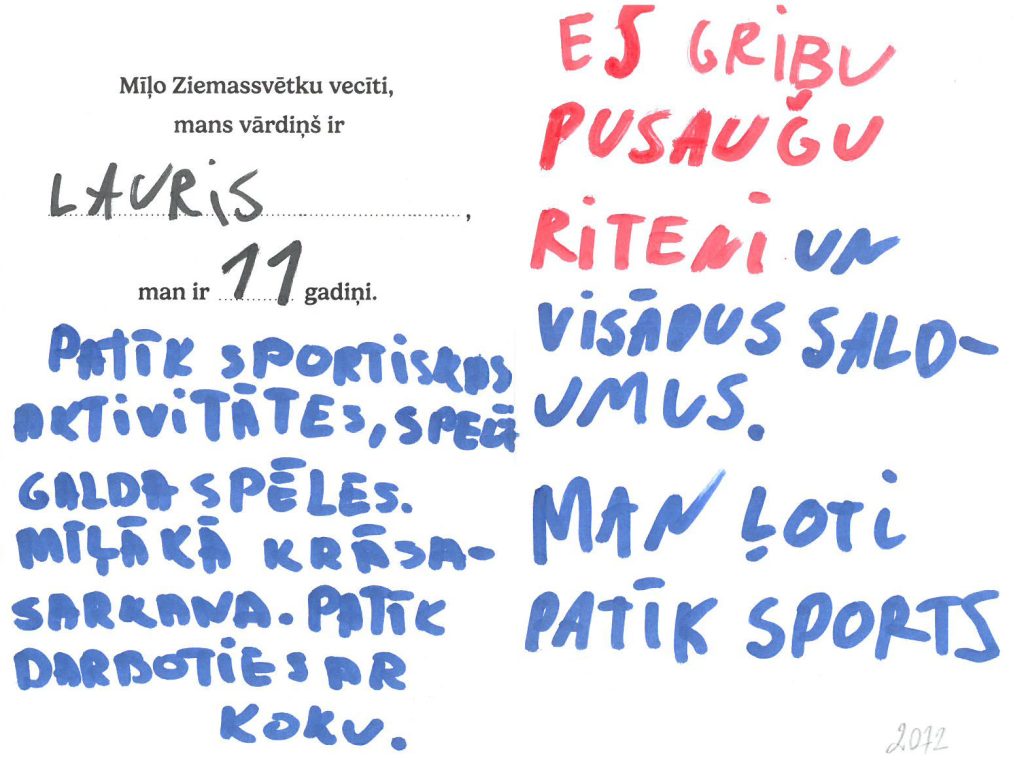 Mīļo Ziemassvētku vecīti,
mans vārdiņš ir
LAURIS,
man ir 11 gadiņi.
PATĪK SPORTISKAS
AKTIVITĀTES, SPĒLĒ
GALDA SPĒLES.
MĪĻĀKĀ KRĀSA-
SARKANA. PATĪK
DARBOTIES AR
KOKU.
ES GRIBU
PUSAUĢU
RITENI UN
VISĀDUS SALD-
UMUS.
MAN ĻOTI
PATĪK SPORTS
2072